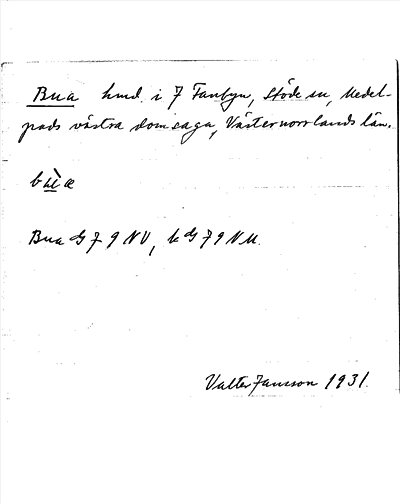 Bua hmd. i 7 Fanbyn, Stöde sn, Medel-
pads västra domsaga, Västernorrlands län.
bùæ
Bua dS 7 9 NV, kdS 7 9 NV.
Valter Jansson 1931.